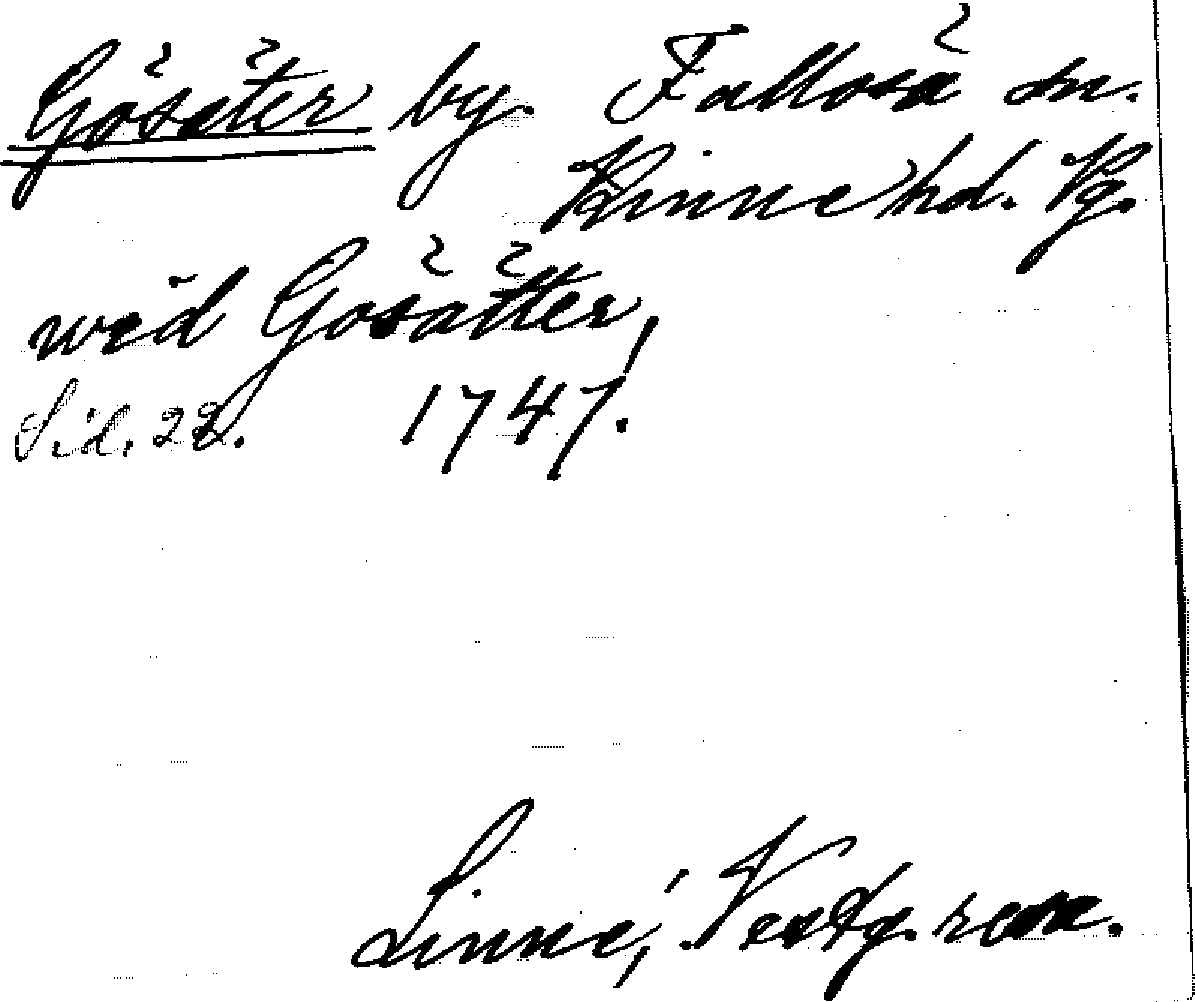 Gösäter by. Fullösa sn.
Kinne hd. Vg.
wid Gösätter,
Sid. 22. 1747.
Linné, Vestg. resa.